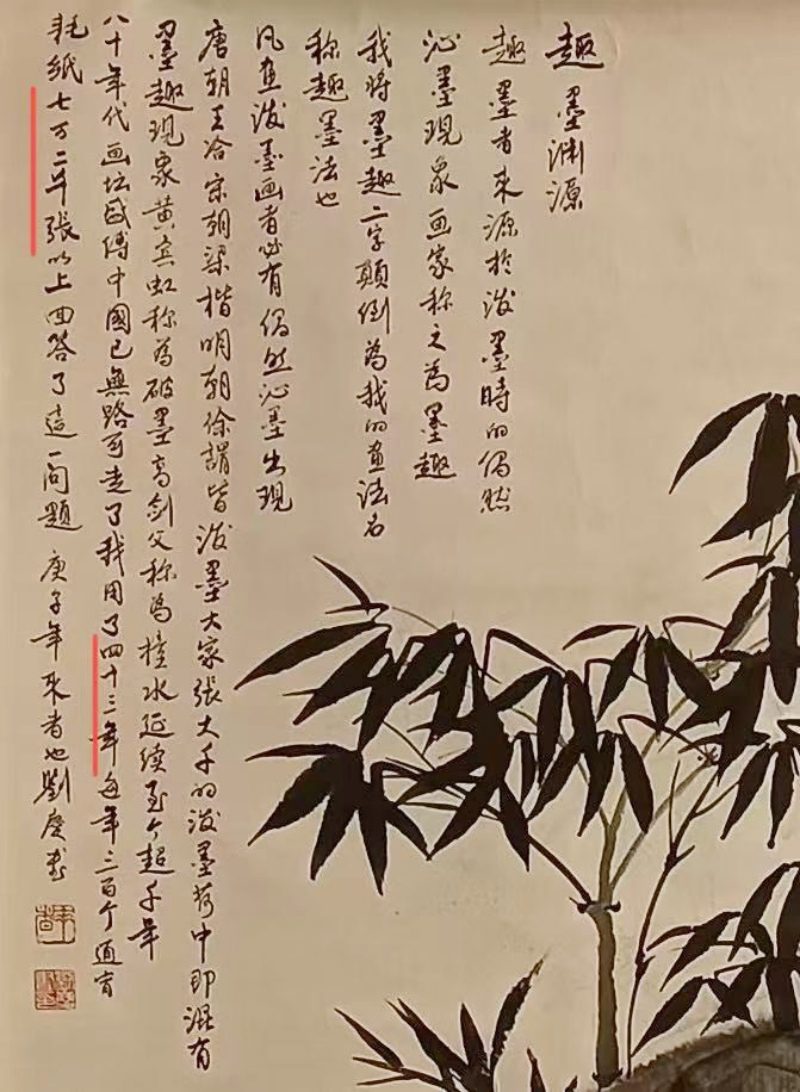 趣墨渊源
趣墨者来源於泼墨時的偶然
沁墨現象画家称之為墨趣
我将墨趣二字顛倒為我的画法名
称趣墨法也
凡画泼墨画者必有偶然沁墨出現
唐朝王洽宗朝梁楷明朝徐謂皆泼墨大家張大千的泼墨荷中即混有
墨趣現象黄宾虹称為破墨高剑父称為撞水延续至今超千年
八十年代画坛盛傳中國已無路可走了我用了四十三年每年三百个通宵
耗紙七万二千張以上回答了這一問題 庚子年来者也劉慶